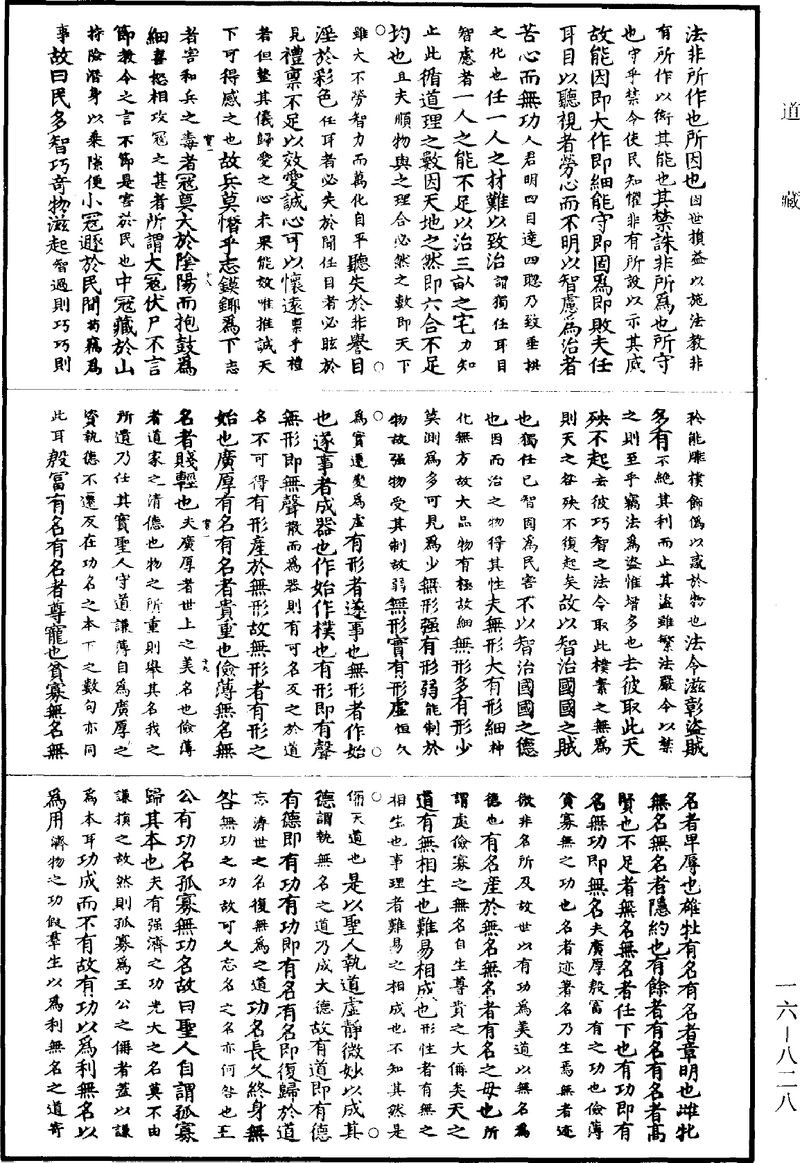 道藏
法非所作也所因也因世損益以施法教非
有所作以衒其能也其禁誅非所為也所守
也守乎禁令使民知懼非有所設以示其威
故能因即大作即細能守即固為即敗夫任
耳目以聽視者勞心而不明以智慮為治者
苦心而無功人君明四目達四聰乃致垂拱
之化也任一人之材難以致治謂獨任耳目
智慮者一人之能不足以治三畝之宅力知
止此循道理之數因天地之然即六合不足
均也且夫順物與之理合必然之數即天下
雖大不勞智力而萬化自平聽失於非譽目
淫於彩色任耳者必失於聞任目者必眩於
見禮亶不足以效愛誠心可以懷遠亶乎禮
者但整其儀歸愛之心未果能放唯推誠天
下可得感之也故兵莫憯乎志鏌鋣為下志
者害和兵之毒者寇莫大於陰陽而枹鼓為
細喜怒相攻寇之甚者所謂大寇伏尸不言
節教令之言不節是害於民也中寇藏於山
持險潛身以乘隙便小寇遯於民間苟竊為
事故曰民多智巧奇物滋起智過則巧巧則
矜能雕樸飾偽以惑於物也法令滋彰盜賊
多有不絕其利而止其盜雖繁法嚴令以禁
之則至乎竊法為盜惟增多也去彼取此天
殃不起去彼巧智之法令取此樸素之無為
則天之咎殃不復起矣故以智治國國之賊
也獨任已智因為民害不以智治國國之德
也因而治之物得其性夫無形大有形細神
化無方故大品物有極故細無形多有形少
莫測為多可見為少無形强有形弱能制於
物故强物受其制故弱無形實有形虛恒久
為實遷變為虛有形者遂事也無形者作始
也遂事者成器也作始作樸也有形即有聲
無形即無聲散而為器則有可名反之於道
名不可得有形產於無形故無形者有形之
始也廣厚有名有名者貴重也儉薄無名無
名者賤輕也夫廣厚者世上之美名也儉薄
者道家之清德也物之所重則舉其名我之
所遺乃任其實聖人守道謙薄自為廣厚之
資執德不遷反在功名之本下之數句亦同
此耳殷富有名有名者尊寵也貧寡無名無
名者卑辱也雄牡有名有名者章明也雌牝
無名無名者隱約也有餘者有名有名者高
賢也不足者無名無名者任下也有功即有
名無功即無名夫廣厚殷富有之功也儉薄
貧寡無之功也名者迹著名乃生焉無者迹
微非名所及故世以有功為美道以無名為
德也有名產於無名無名者有名之母也所
謂虛儉寡之無名自生尊貴之大偁矣天之
道有無相生也難易相成也形性者有無之
相生也事理者難易之相成也不知其然是
偁天道也是以聖人執道虛靜微妙以成其
德謂執無名之道乃成大德故有道即有德
有德即有功有功即有名有名即復歸於道
忘濟世之名復無為之道功名長久終身無
咎無功之功故可久忘名之名亦何咎也王
公有功名孤寡無功名故曰聖人自謂孤寡
歸其本也夫有强濟之功光大之名莫不由
謙損之故然則孤寡為王公之偁者蓋以謙
為本耳功成而不有故有功以為利無名以
為用濟物之功假羣生以為利無名之道寄
一六—八二八